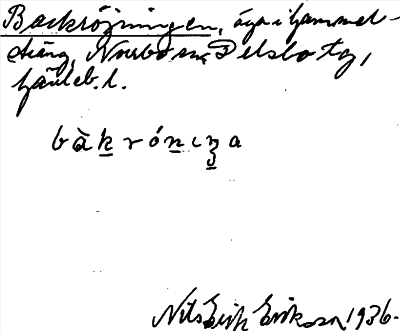 Backröjningen, äga i hammel-
stäng, Norrbo sn, Delsbo tg,
Gävleb. l.
bàk̲rón̲ıŋ̲a
Nils Erik Eriksson 1936.